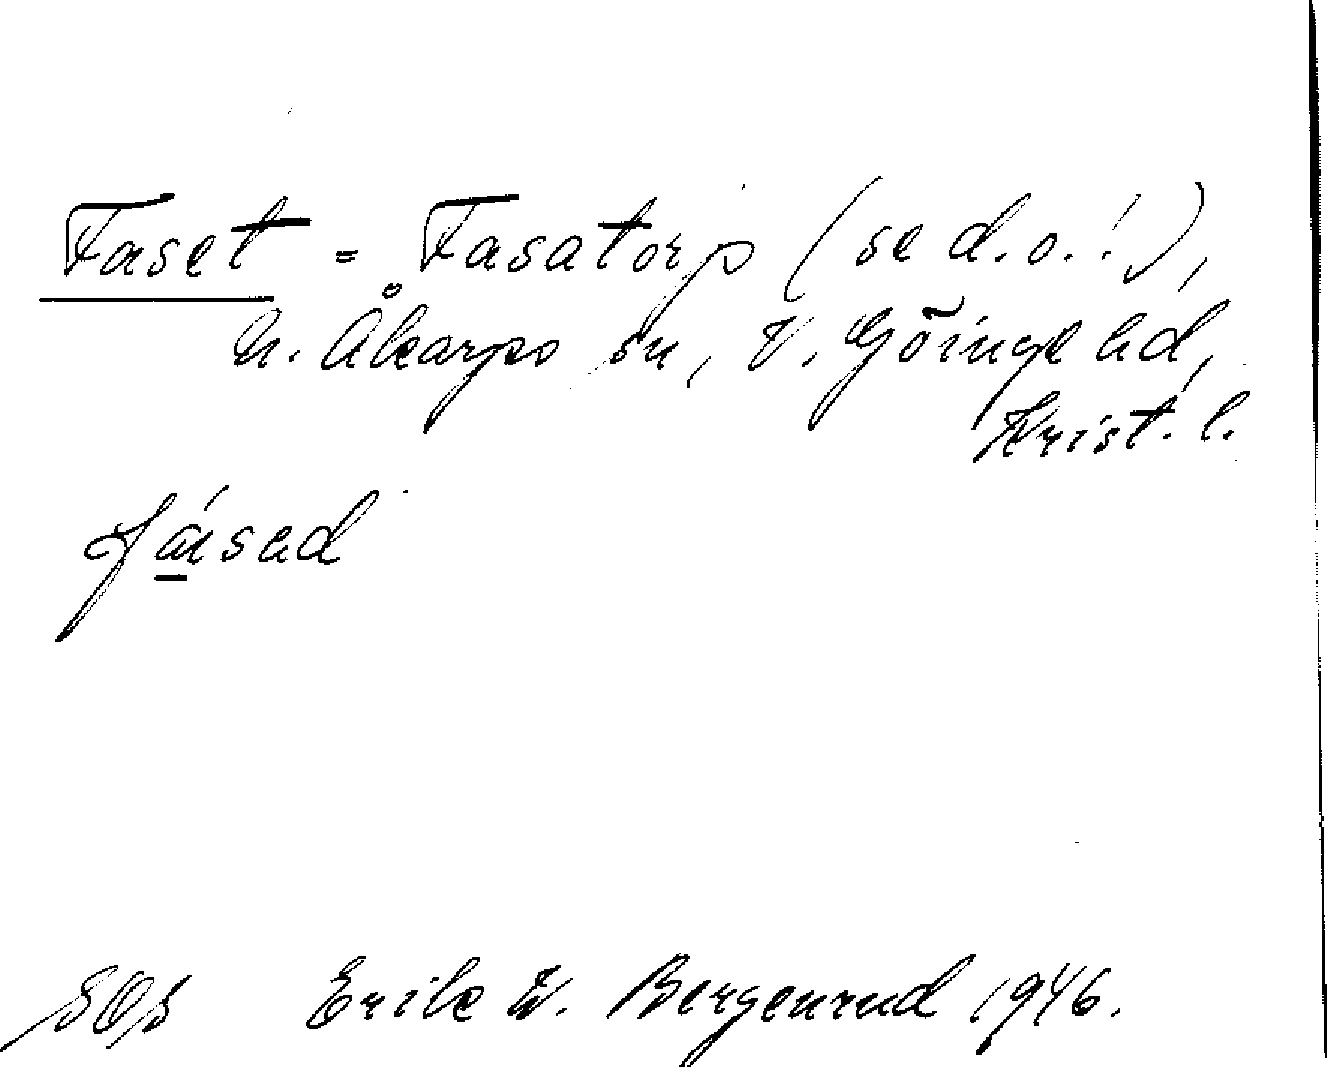 Faset = Fasatorp (se d.o.!),
N. Åkarps sn, V. Göinge hd,
Krist. l.
fá̱sad
Erik W. Bergenrud 1946.